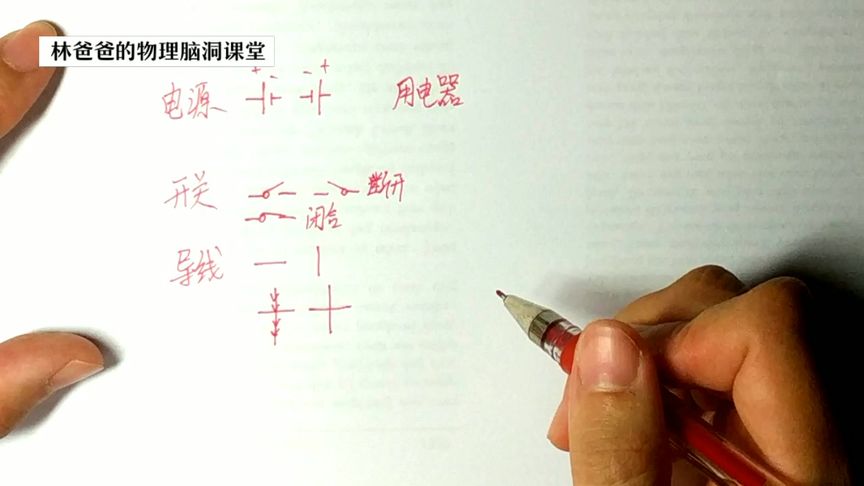 林爸爸的物理脑洞课堂
+ - - +
电源 用电器
开关 断开
闭合
导线